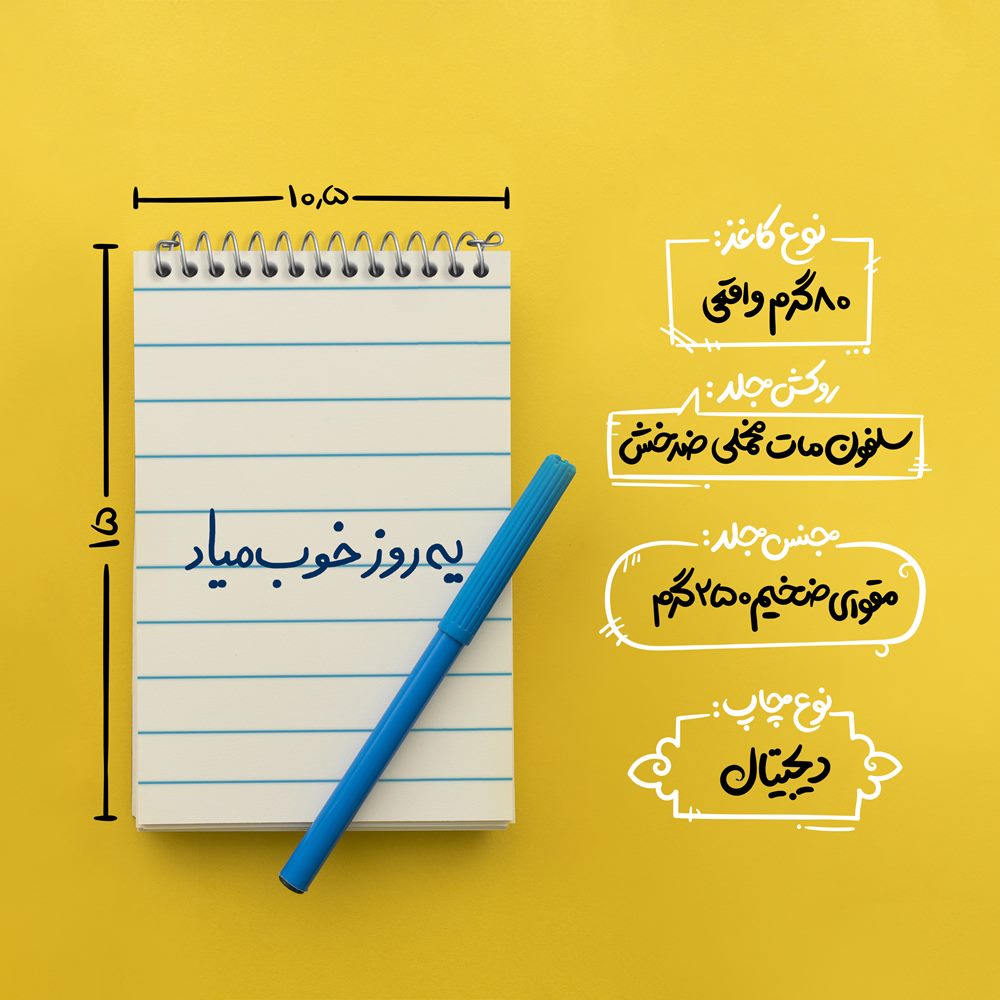 ۱۰٫۵
۱۵
یه روز خوب میاد
نوع کاغذ:
۸۰گرم واقعی
روکش جلد:
سلفون مات مخملی ضدخش
جنس جلد:
مقوای ضخیم ۲۵۰گرم
نوع چاپ:
دیجیتال